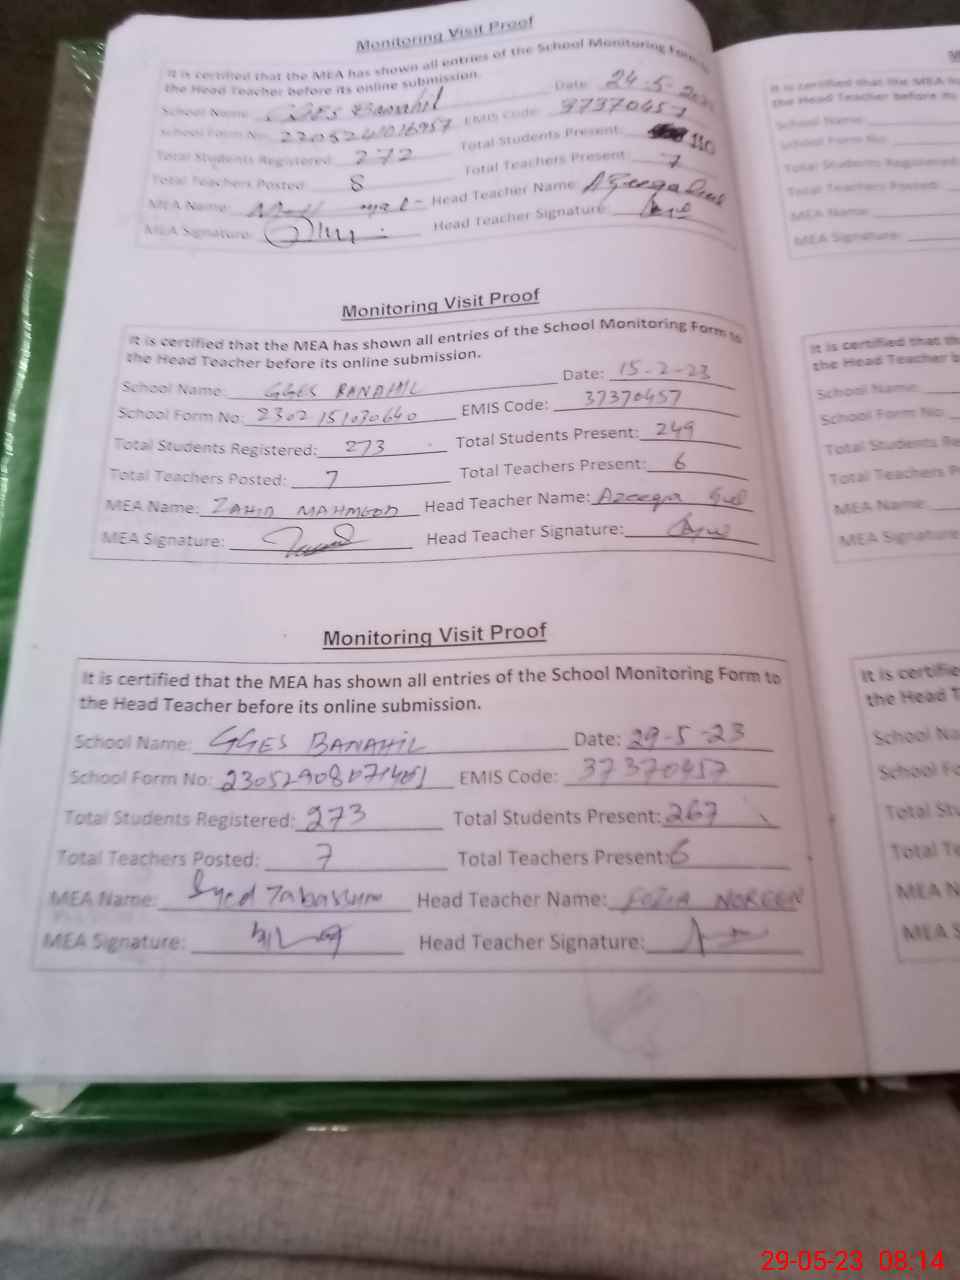 Monitoring Visit Proof
It is certified that the MEA has shown all entries of the School Monitoring Form to
the Head Teacher before its online submission.
School Name: GGES Banahil Date: 24-5-
School Form No: 23052411016957 EMIS Code: 37370457
Total Students Registered: 272 Total Students Present: 110
Total Teachers Posted: 8 Total Teachers Present: 7
MEA Name: Head Teacher Name: Azeeqa Gul
MEA Signature: Head Teacher Signature:
Monitoring Visit Proof
It is certified that the MEA has shown all entries of the School Monitoring Form to
the Head Teacher before its online submission.
School Name: GGES BANAHIL Date: 15-2-23
School Form No: 2302151030640 EMIS Code: 37370457
Total Students Registered: 273 Total Students Present: 249
Total Teachers Posted: 7 Total Teachers Present: 6
MEA Name: ZAHID MAHMOOD Head Teacher Name: Azeeqa Gul
MEA Signature: Head Teacher Signature:
Monitoring Visit Proof
It is certified that the MEA has shown all entries of the School Monitoring Form to
the Head Teacher before its online submission.
School Name: GGES BANAHIL Date: 29-5-23
School Form No: EMIS Code: 37370457
Total Students Registered: 273 Total Students Present: 267
Total Teachers Posted: 7 Total Teachers Present: 6
MEA Name: Syed Tabassum Head Teacher Name: FOZIA NOREEN
MEA Signature: Head Teacher Signature:
It is certified that the MEA
the Head Teacher before its
School Name:
School Form No:
Total Students Registered:
Total Teachers Posted:
MEA Name:
MEA Signature:
It is certified that
the Head Teacher
School Name:
School Form No:
Total Students Re
Total Teachers P
MEA Name:
MEA Signature
It is certifie
the Head T
School Na
School Fo
Total Stu
Total Te
MEA N
MEA S
29-05-23 08:14